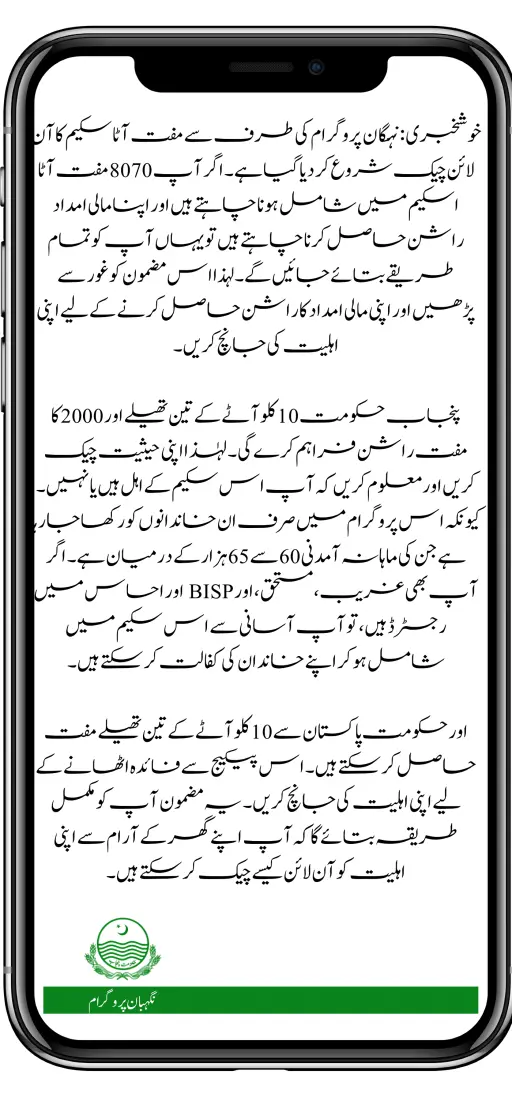 خوشخبری: نہگان پروگرام کی طرف سے مفت آٹا سکیم کا آن
لائن چیک شروع کر دیا گیا ہے۔ اگر آپ 8070 مفت آٹا
اسکیم میں شامل ہونا چاہتے ہیں اور اپنا مالی امداد
راشن حاصل کرنا چاہتے ہیں تو یہاں آپ کو تمام
طریقے بتائے جائیں گے۔ لہذا اس مضمون کو غور سے
پڑھیں اور اپنی مالی امداد کا راشن حاصل کرنے کے لیے اپنی
اہلیت کی جانچ کریں۔
پنجاب حکومت 10 کلو آٹے کے تین تھیلے اور 2000 کا
مفت راشن فراہم کرے گی۔ لہٰذا اپنی حیثیت چیک
کریں اور معلوم کریں کہ آپ اس سکیم کے اہل ہیں یا نہیں۔
کیونکہ اس پروگرام میں صرف ان خاندانوں کو رکھا جا رہا
ہے جن کی ماہانہ آمدنی 60 سے 65 ہزار کے درمیان ہے۔ اگر
آپ بھی غریب، مستحق، اور BISP اور احساس میں
رجسٹرڈ ہیں، تو آپ آسانی سے اس سکیم میں
شامل ہو کر اپنے خاندان کی کفالت کر سکتے ہیں۔
اور حکومت پاکستان سے 10 کلو آٹے کے تین تھیلے مفت
حاصل کر سکتے ہیں۔ اس پیکیج سے فائدہ اٹھانے کے
لیے اپنی اہلیت کی جانچ کریں۔ یہ مضمون آپ کو مکمل
طریقہ بتائے گا کہ آپ اپنے گھر کے آرام سے اپنی
اہلیت کو آن لائن کیسے چیک کر سکتے ہیں۔
نگہبان پروگرام